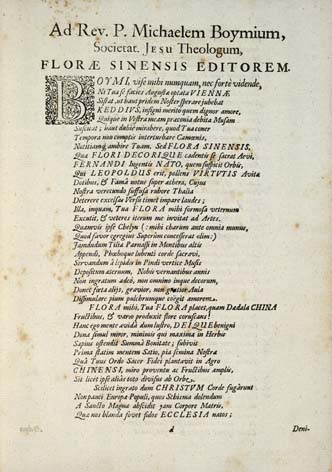 Ad Rev. P. Michaelem Boymium,
Societat. Jesu Theologum,
FLORÆ SINENSIS EDITOREM.
BOYMI, vise mihi nunquam, nec fortè vidende,
Ni Tua se facies Augusta optata VIENNÆ
Sistat, ut haut pridem Noster sperare jubebat
KEDDIUS, insigni meritò quem dignor amore,
Quique in Vestra meam præconia debita Musam
Suscitat; haut dubiè mirabere, quod Tua comer
Tempora non comptis interturbare Camœnis,
Notitiamq́ ambire Tuam. Sed FLORA SINENSIS,
Qua FLORI DECORIQUE cadentis se sacrat Arvi,
FERNANDI lugentis NATO, quem suspicit Orbis,
Qui LEOPOLDUS erit, pollens VIRTUTIS Avita
Dotibus, & Famâ notus super æthera, Cujus
Nostra verecundo suffusa rubore Thalia
Deterere excelsas Versu timet impare laudes;
Illa, inquam, Tua FLORA mihi formosa veternum
Excutit, & veteres iterum me invitat ad Artes.
Quamvis ipse Chelyn (: mihi charum ante omnia munus,
Quod favor egregius Superûm concesserat olim:)
Jamdudum Tilia Parnassi in Montibus altis
Appendi, Phœboque lubenti corde sacravi,
Servandum à lepidis in Pindi vertice Musis
Depositum aternum, Nobis vernantibus annis
Non ingratum adeò, non omnino inque decorum,
Donec fueta alijs, gravior, non gratior Aula
Dissimulare pium pulchrumque coëgit amorem.
FLORA mihi, Tua FLORA placet, quam Dædala CHINA
Fructibus, & vario produxit flore coruscans!
Hanc ego mente avidâ dum lustro, DEIQUE benigni
Dona simul miror, nimiùm qui maxima in Herbis
Sapius ostendit Summa Bonitate; subivit
Prima statim mentem Satio, pia semina Nostra
Quà Tuus Ordo Sacer Fidei plantavit in Agro
CHINENSI, miro proventu ac Fructibus amplis,
Sit licet ipse alias toto divisus ab Orbe.
Scilicet ingrato dum CHRISTUM Corde fugârunt
Nonpauci Europæ Populi, quos Schisma dolendum
A Sancto Magna abscidit jam Corpore Matris,
Quæ nos blanda fovet sidere ECCLESIA natos;
d
Deni-